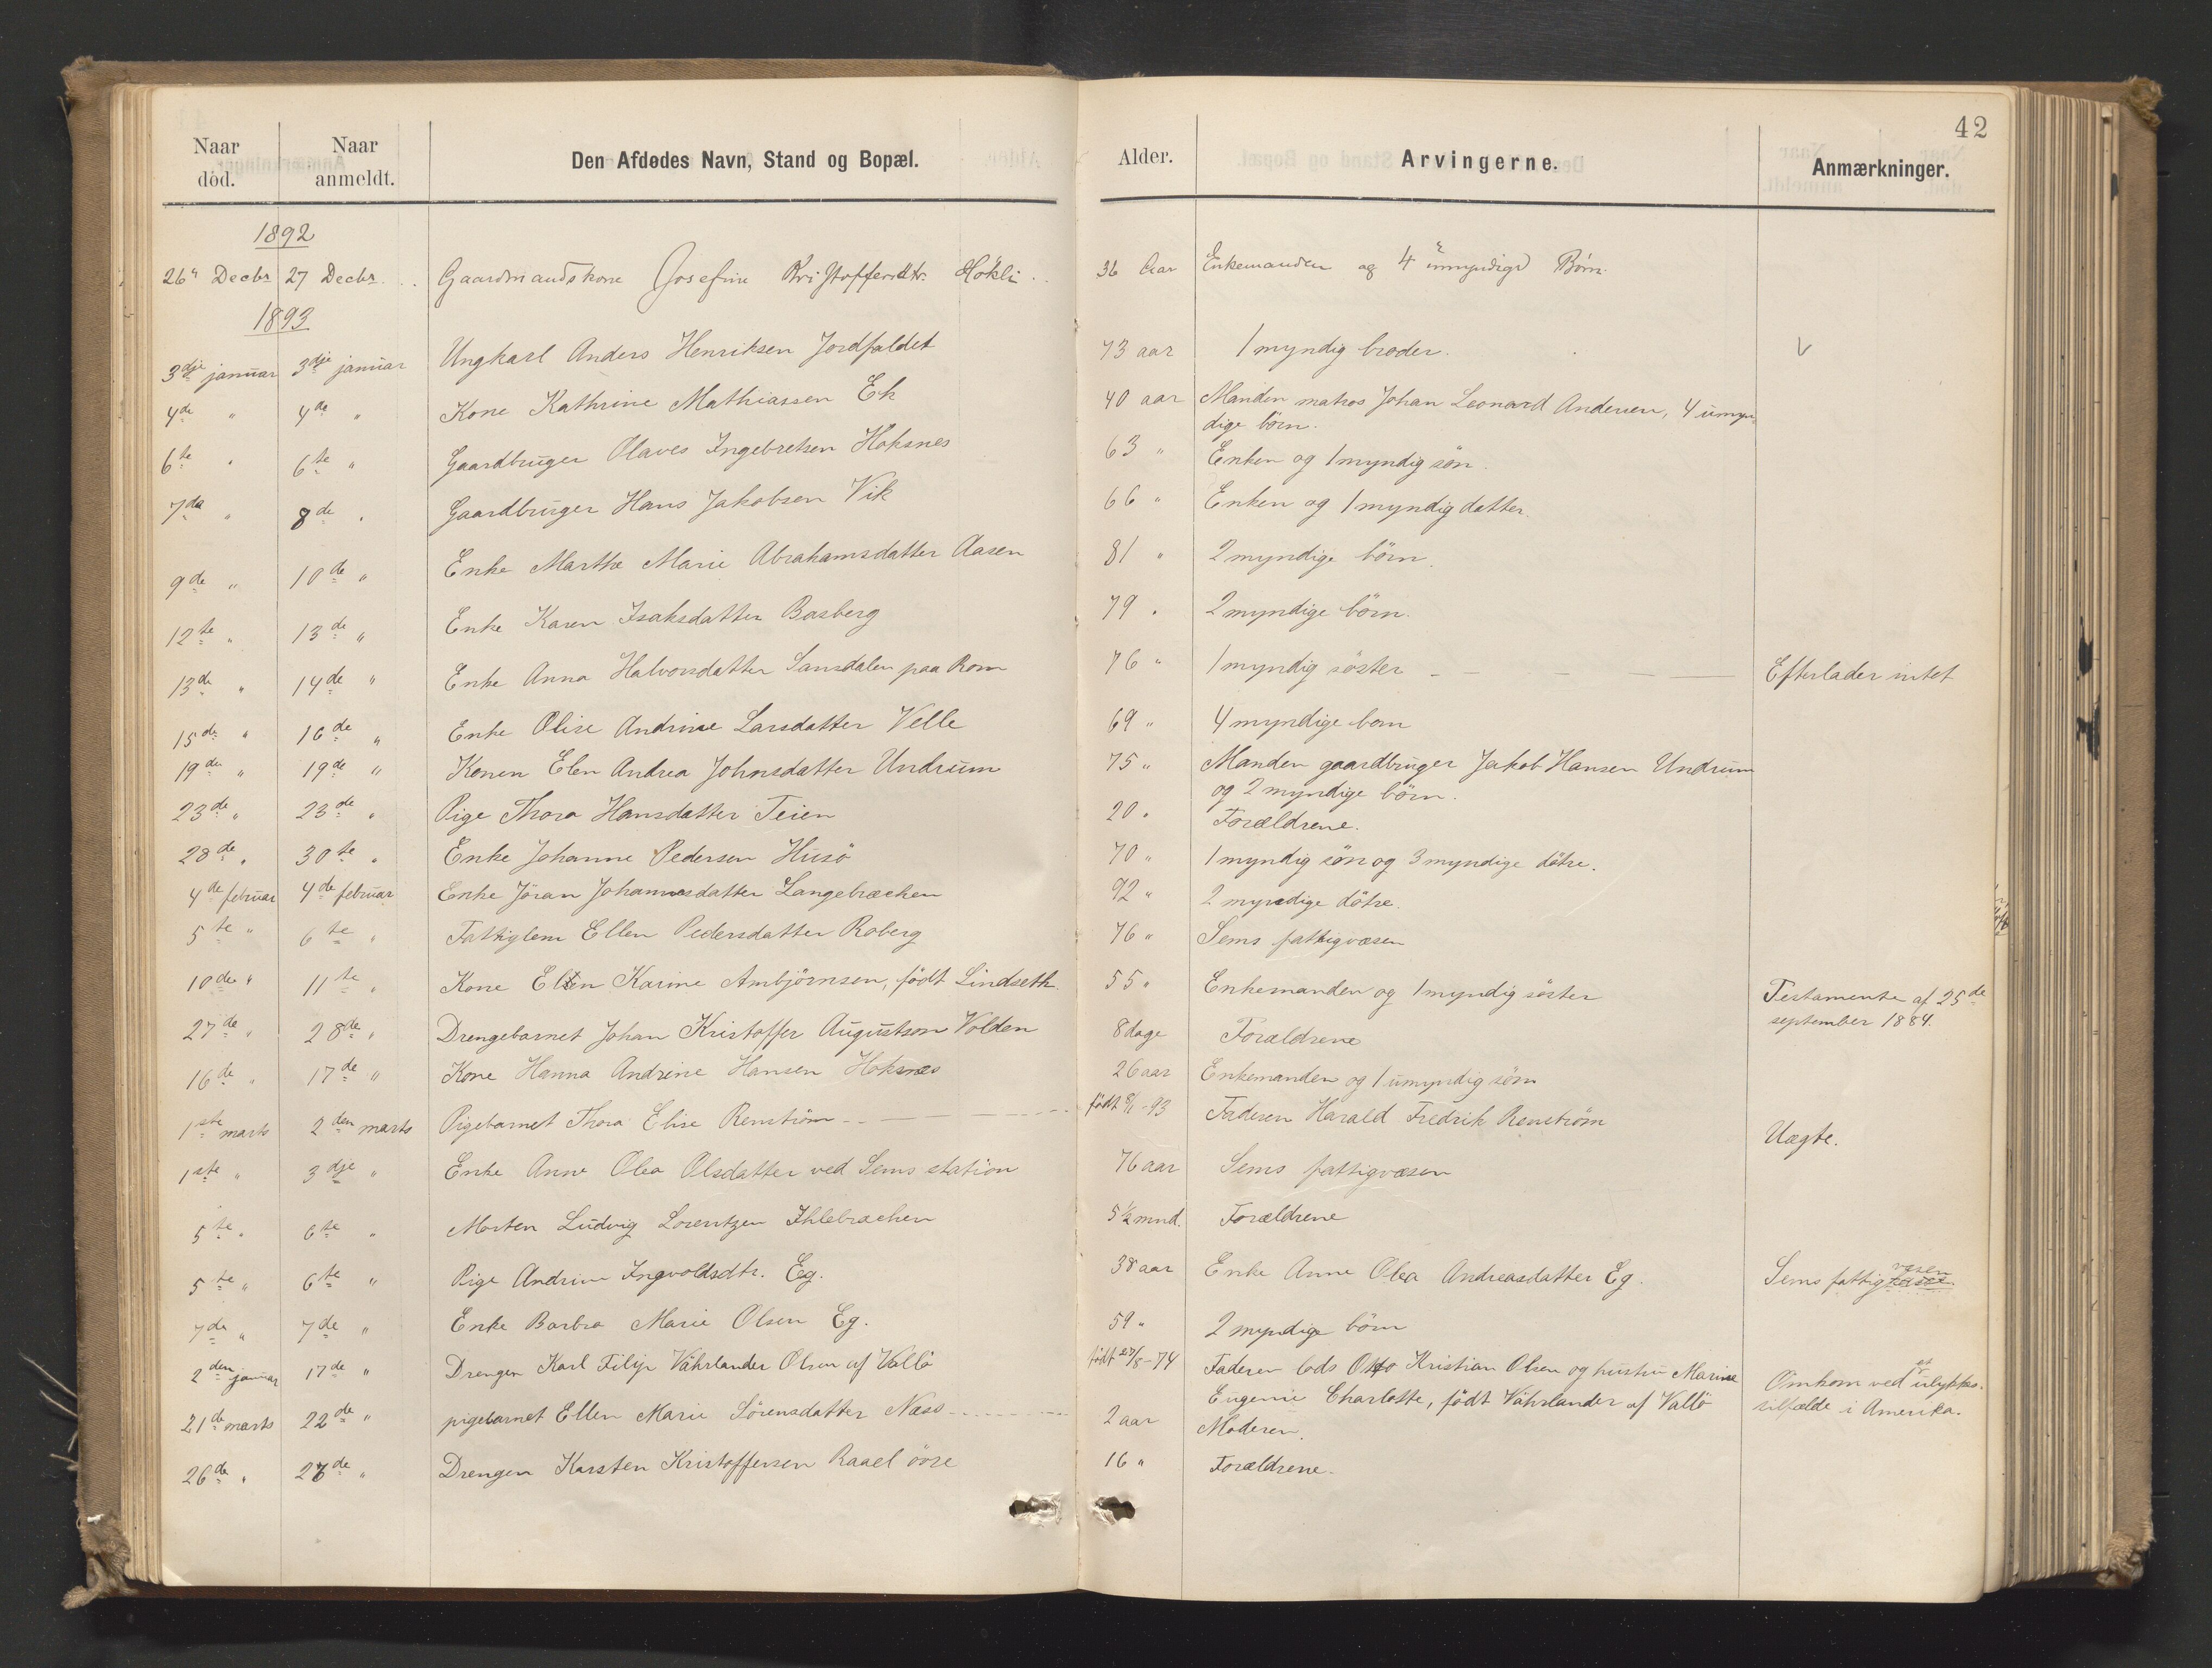 42
Naar død. Naar anmeldt. Den Afdødes Navn, Stand og Bopæl. Alder. Arvingerne. Anmærkninger.
1892
26" Decbr 27 Decbr. Gaardmandskone Josefine Kristoffersdtr. Hökli. 36 Aar Enkemanden og 4 umyndige Børn.
1893
3dje januar 3dje januar Ungkarl Anders Henriksen Jordfaldet 73 aar 1 myndig broder. V
4de " 4de " Kone Kathrine Mathiassen Ek 40 aar Manden matros Johan Leonard Andersen, 4 umyn-
dige börn.
6te " 6te " Gaardbruger Olaves Ingebretsen Hoksnes 63 " Enken og 1 myndig sön.
7de " 8de " Gaardbruger Hans Jakobsen Vik 66 " Enken og 1 myndig datter.
9de " 10de " Enke Marthe Marie Abrahamsdatter Aasen 81 " 2 myndige börn.
12te " 13de " Enke Karen Isaksdatter Basberg 79 " 2 myndige börn.
13de " 14de " Enke Anna Halvorsdatter Sandalen paa Rom 76 " 1 myndig söster - - - - Efterlader intet
15de " 16de " Enke Olise Andrine Larsdatter Velle 69 " 4 myndige born
19de " 19de " Konen Elen Andrea Johnsdatter Undrum 75 " Manden gaardbruger Jakob Hansen Undrum
og 2 myndige börn.
23de " 23de " Pige Thora Hansdatter Teien 20 " Forældrene.
28de " 30te " Enke Johanne Pedersen Husö 70 " 1 myndig sön og 3 myndige dötre.
4de februar 4de februar Enke Jöran Johannesdatter Langebrækken 92 " 2 myndige dötre.
5te " 6te " Fattiglem Ellen Pedersdatter Roberg 76 " Sems fattigvæsen
10de " 11te " Kone Ellen Karine Ambjörnsen, født Lindseth. 55 " Enkemanden og 1 myndig söster Testamente af 25de
september 1884.
27de " 28de " Drengebarnet Johan Kristoffer Augustson Volden 8 dage Forældrene
16de " 17de " Kone Hanna Andrine Hansen Hoksnes 26 aar Enkemanden og 1 umyndig sön
1ste marts 2den marts Pigebarnet Thora Elise Renström - - - født 8/1-93 Faderen Harald Fredrik Renström Uægte.
1ste " 3dje " Enke Anne Olea Olsdatter ved Sems station 76 aar Sems fattigvæsen
5te " 6te " Morten Ludvig Lorentzen Ihlebrækken 5 1/2 mnd. Forældrene
5te " 6te " Pige Andrine Ingvoldsdtr. Eg. 38 aar Enke Anne Olea Andreasdatter Eg. Sems fattigvæsen
7de " 7de " Enke Barbra Marie Olsen Eg. 59 " 2 myndige börn
2den januar 17de " Drengen Karl Filip Vährlander Olsen af Vallö født 27/8-74 Faderen lods Otto Kristian Olsen og hustru Marine
Eugenie Charlotte, født Vährlander af Vallö Omkom ved et ulykkes-
tilfælde i Amerika.
21de marts 22de " pigebarnet Ellen Marie Sörensdatter Næss - - - 2 aar Moderen.
26de " 28de " Drengen Karsten Kristoffersen Raael övre 16 " Forældrene.